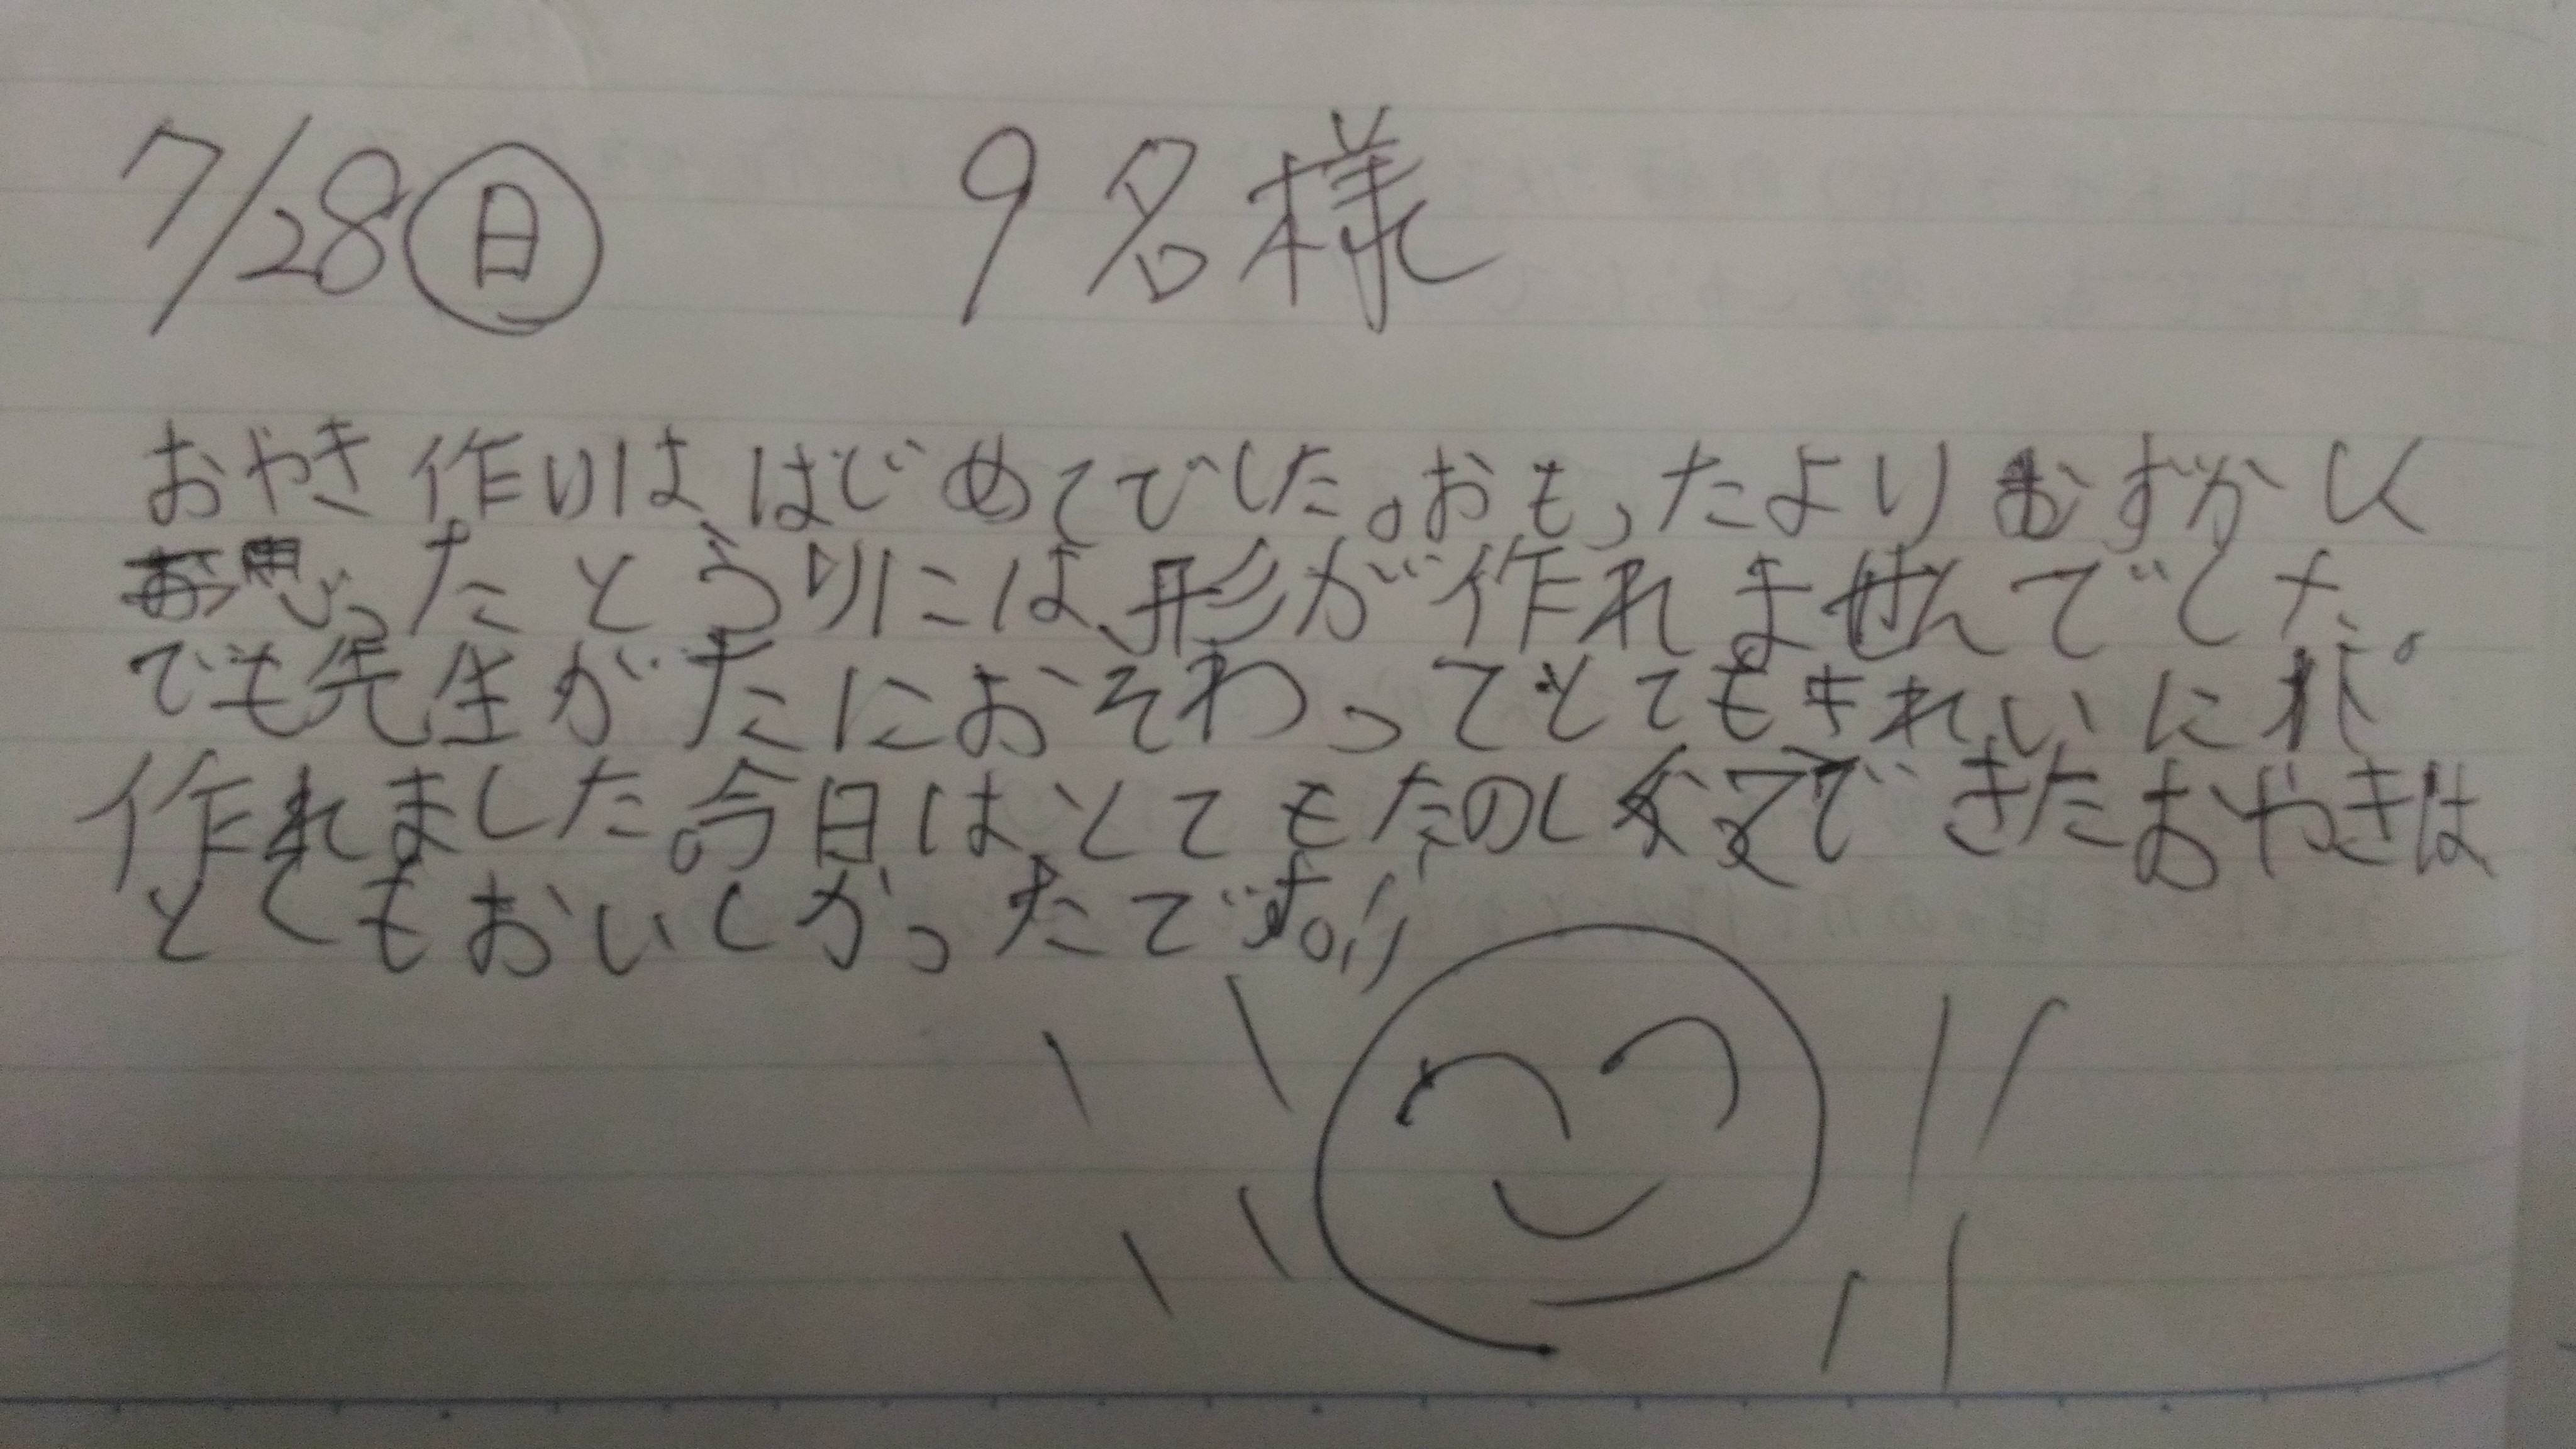 7/28㊐ 9名様
おやき作りは、はじめてでした。おもったよりむずかしく
思ったとうりには、形が作れませんでした。
でも先生がたにおそわってとてもきれいに
作れました。今日はとてもたのしくてできたおやきは
とくもおいしかったです。